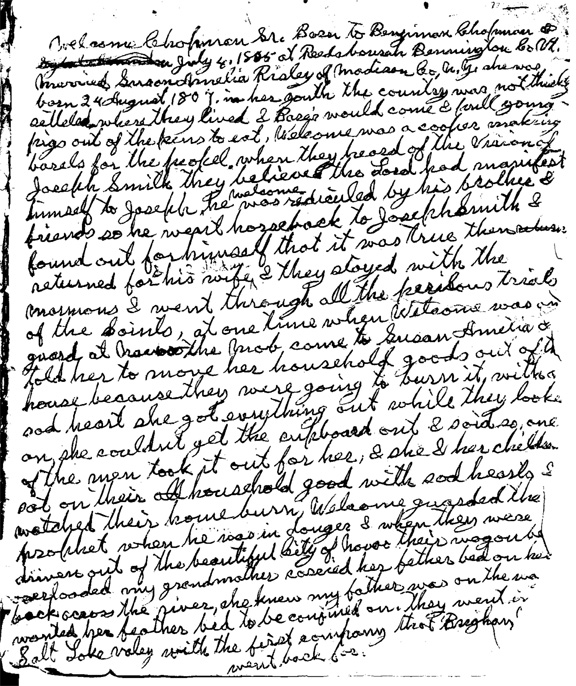 Welcome Chapman Sr. Born To Benjiman Chapman &
July 4, 1805 at Reedsbourah Bennington Co, Vt.
Married Susan Amelia Risley of Madison Co, N.Y. she was
born 24 August 1807. in her youth the country was not thickly
settled where they lived & Bears would come & pull young
pigs out of the pens to eat, Welcome was a cooper making
barels for the peopel. when they heard of the Vision of
Joseph Smith they believed the Lord had manifest
himself to Joseph, he Welcome was rediculed by his brother &
friends so he went horseback to Joseph Smith &
found out for himself that it was true then
returned for his wife, & they stayed with the
mormons & went through all the perilous trials
of the Saints, at one time when Welcome was on
guard at Navoo the mob come to Susan Amelia &
told her to move her household goods out of th
house because they were going to burn it, with a
sad heart she got evrything out while they looke
on, she couldnt get the cupboard out & said so, one
of the men took it out for her, & she & her children
sat on their household good with sad hearts &
watched their home burn, Welcome guarded the
prophet when he was in danger & when they were
driven out of the beautiful city of Navoo their wagon be
overloaded my grandmother carried her fether bed on her
back across the river, she knew my father was on the wa
wanted her feather bed to be confined on. they went in
Salt Lake valey with the first company that Brigham
went back for.